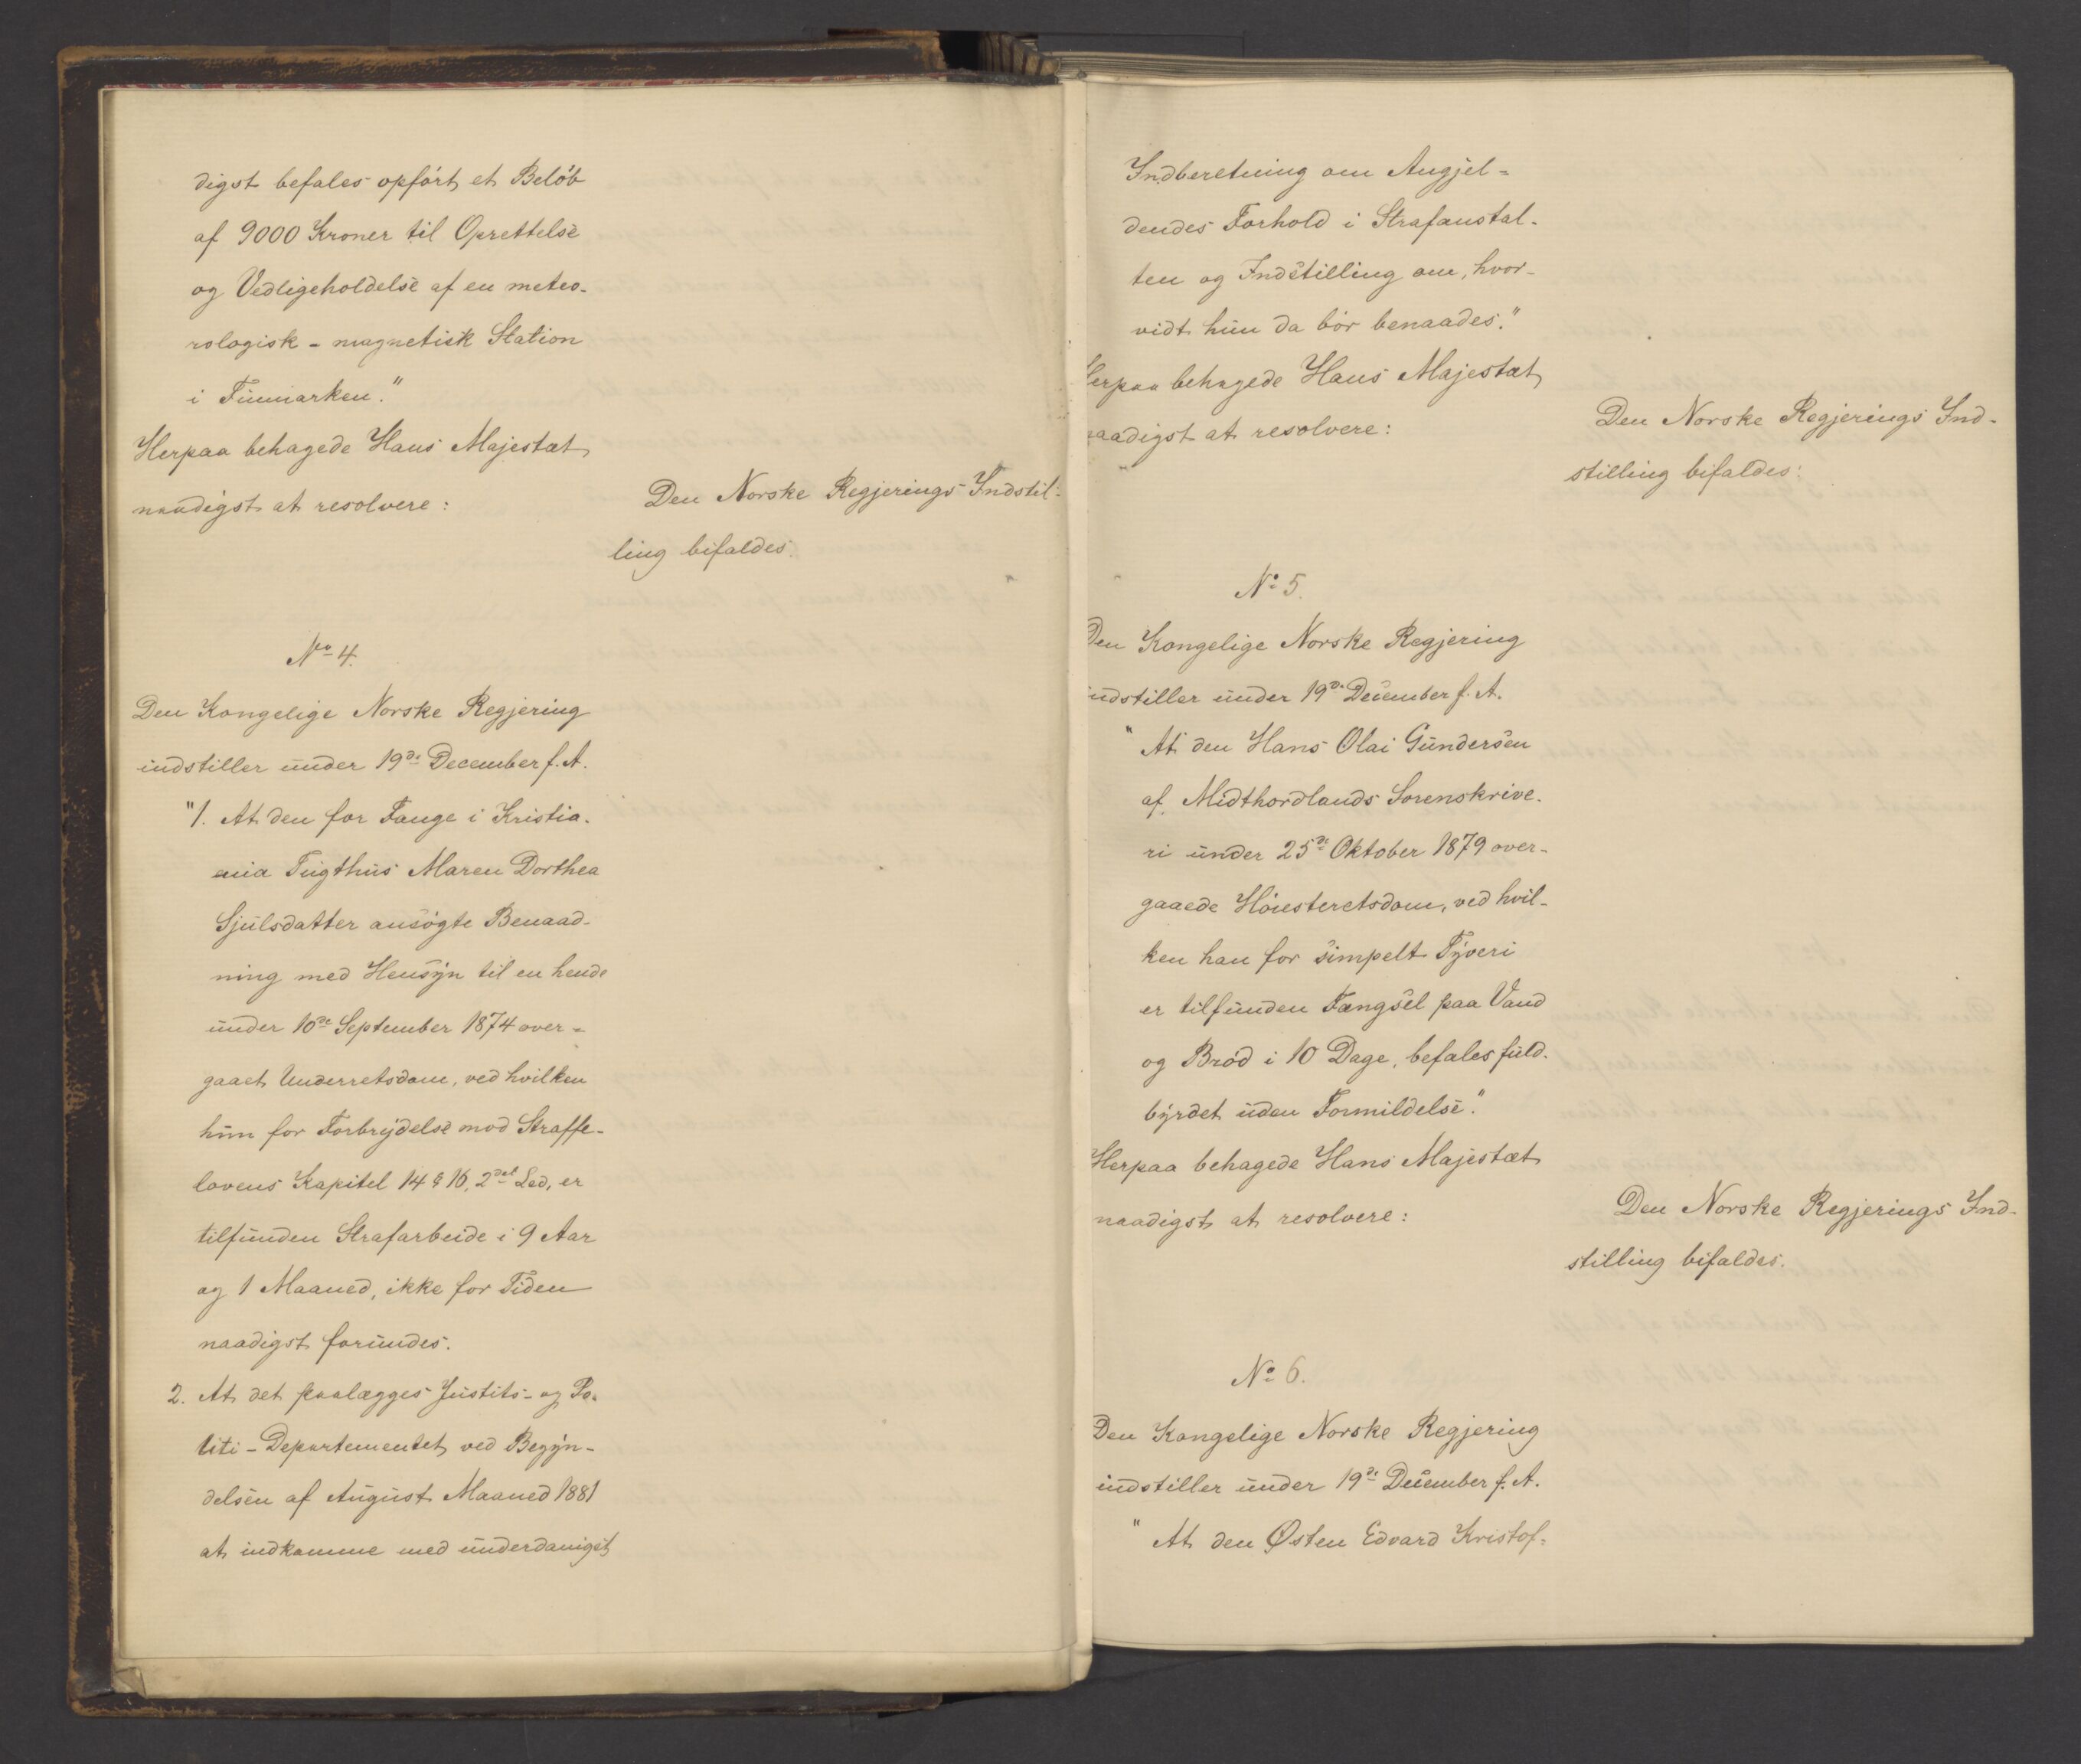 digst befales opført et Beløb
af 9000 Kroner til Oprettelse
og Vedligeholdelse af en meteo-
rologisk - magnetisk Station
i Finmarken."
Herpaa behagede Hans Majestæt
naadigst at resolvere:
Den Norske Regjerings Indstil-
ling bifaldes.
No 4.
Den Kongelige Norske Regjering
indstiller under 19de December f. A.
"1. At den for Fange i Kristia-
ania Tugthus Maren Dorthea
Sjulsdatter ansøgte Benaad-
ning med Hensyn til en hende
under 10de September 1874 over-
gaaet Underretsdom, ved hvilken
hun for Forbrydelse mod Straffe-
lovens Kapitel 14 § 16, 2det Led, er
tilfunden Strafarbeide i 9 Aar
og 1 Maaned, ikke for Tiden
naadigst forundes.
2. At det paalægges Justits- og Po-
liti-Departementet ved Begyn-
delsen af August Maaned 1881
at indkomme med underdanigst
Indberetning om Angjel-
dendes Forhold i Strafanstal-
ten og Indstilling om, hvor-
vidt hun da bør benaades."
Herpaa behagede Hans Majestæt
naadigst at resolvere:
Den Norske Regjerings Ind-
stilling bifaldes.
No 5.
Den Kongelige Norske Regjering
indstiller under 19de December f. A.
"At den Hans Olai Gundersen
af Midthordlands Sorenskrive-
ri under 25de Oktober 1879 over-
gaaede Høiesteretsdom, ved hvil-
ken han for simpelt Tyveri
er tilfunden Fængsel paa Vand
og Brød i 10 Dage, befales fuld-
byrdet uden Formildelse."
Herpaa behagede Hans Majestæt
naadigst at resolvere:
Den Norske Regjerings Ind-
stilling bifaldes.
No 6.
Den Kongelige Norske Regjering
indstiller under 19de December f. A.
"At den Østen Edvard Kristof-